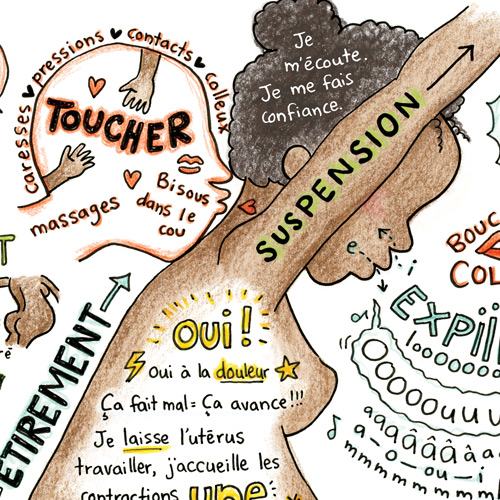 caresses ♥ pressions ♥ contacts ♥ colleux
TOUCHER
massages
Bisous
dans le
cou
Je
m'écoute.
Je me fais
confiance.
SUSPENSION
BOUC
COL
EXPI
ETIREMENT
OUI!
Oui à la douleur
Ça fait mal = Ça avance!!!
Je laisse l'utérus
travailler, j'accueille les
contractions une
OOOOOuuu
a-o-ou-i